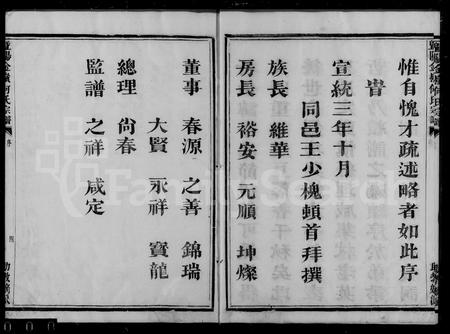 惟自愧才疏述略者如此序
宣統三年十月
同邑王少槐頓首拜撰
族長 維華
房長 裕安 元順 坤燦
董事 春源 之善 錦瑞
大賢 永祥 寶龍
總理 尚春
監譜 之祥 咸定
序